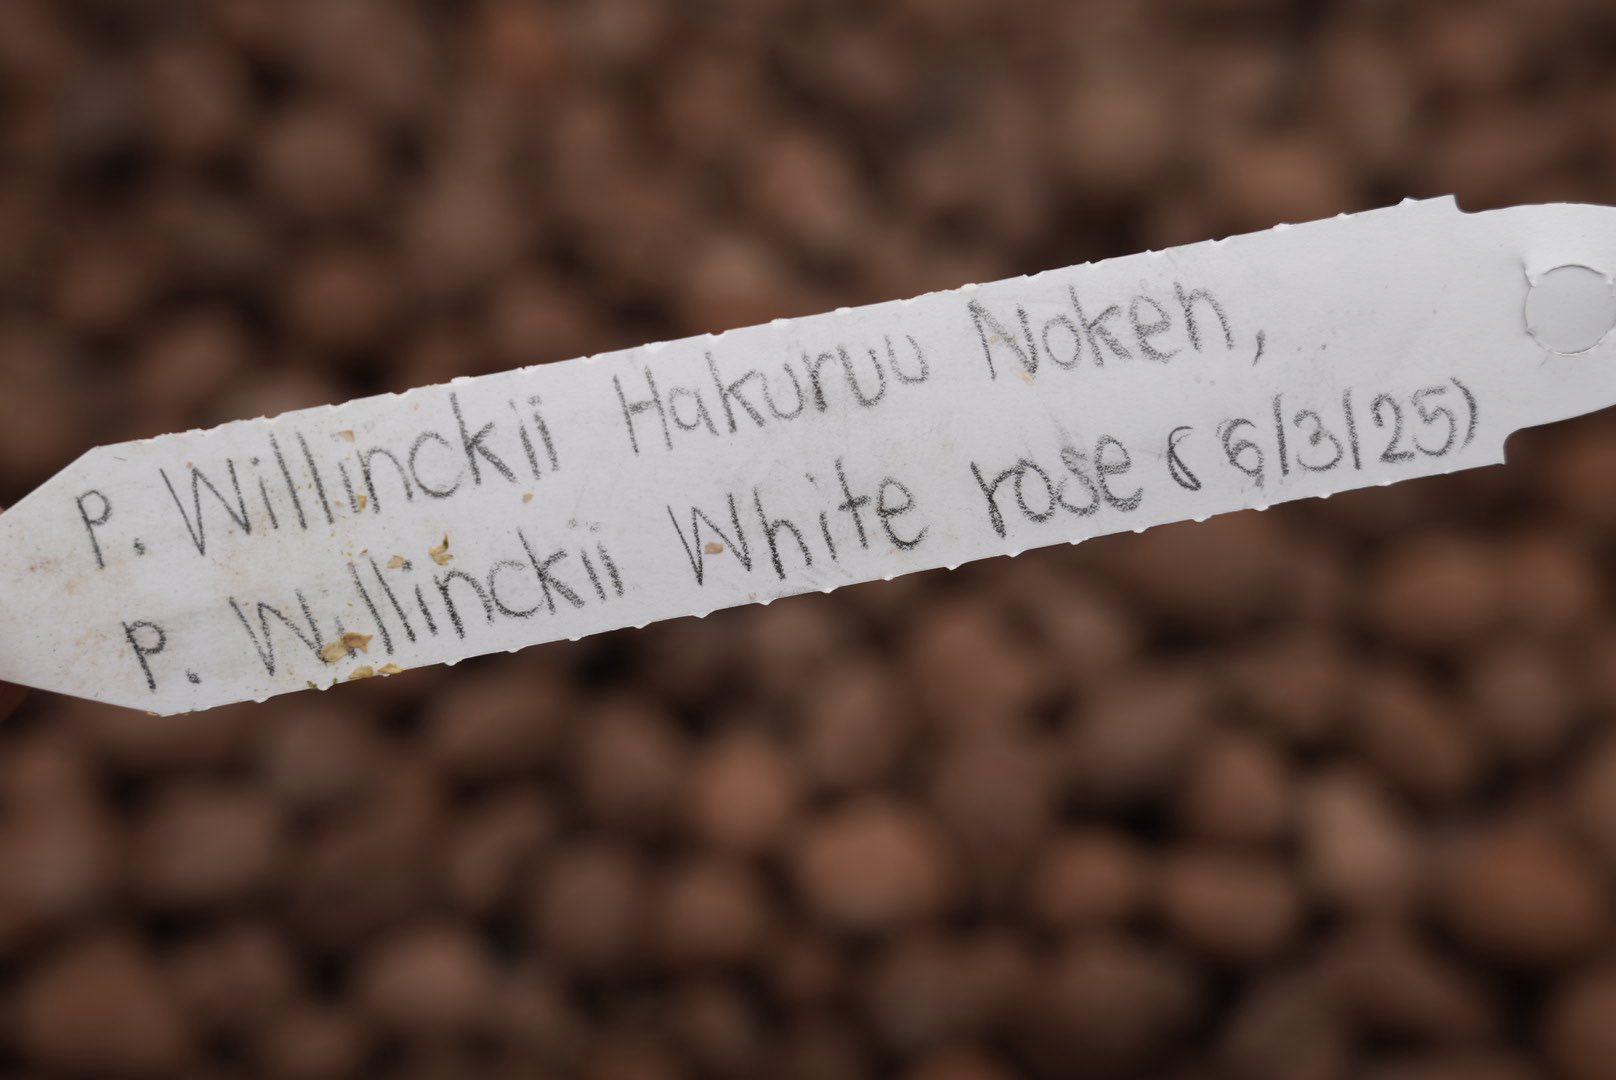 P. Willinckii Hakuruu Noken,
P. Willinckii White rose (6/3/25)